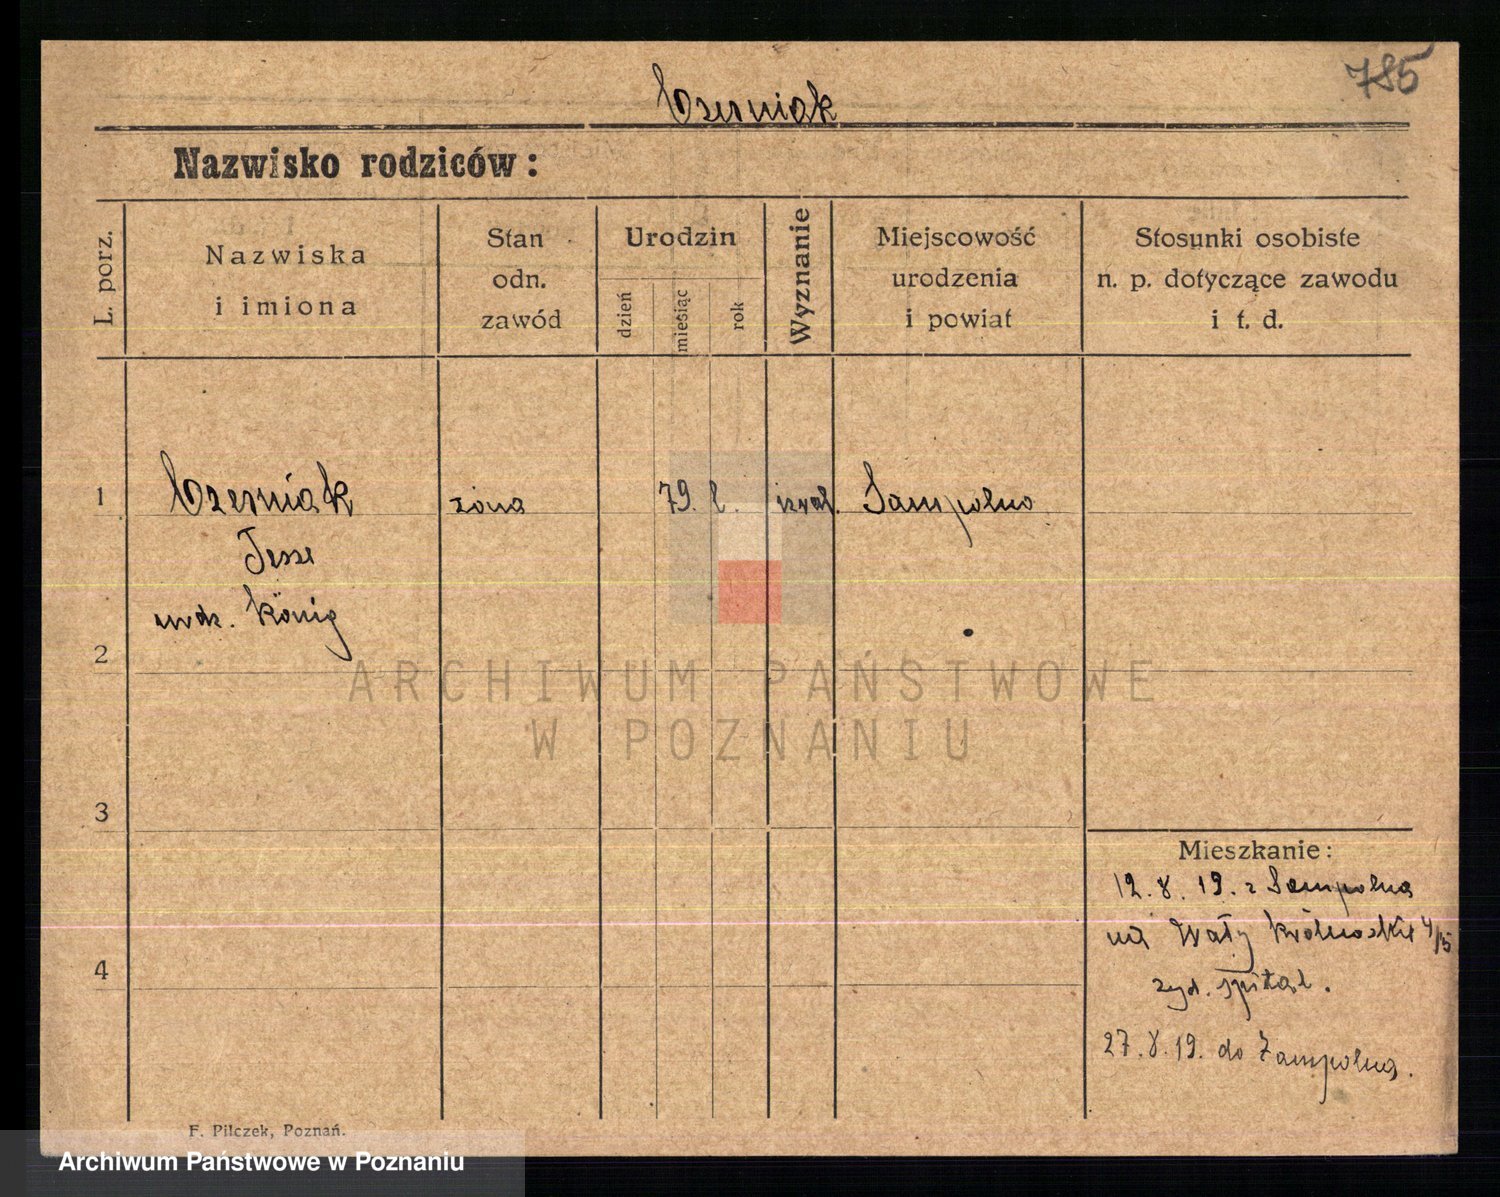 785
Czerniak
Nazwisko rodziców:
L. porz.
Nazwiska
i imiona
Stan
odn.
zawód
Urodzin
dzień
miesiąc
rok
Wyznanie
Miejscowość
urodzenia
i powiat
Stosunki osobiste
n. p. dotyczące zawodu
i t. d.
1 Czerniak żona 79. l. izrael. Sampolno
Jesse
urdz. König
2
3
4
Mieszkanie:
12.8.19. z Sampolna
na Wały Królowskie 4/5
żyd. spital.
27.8.19. do Zampolna.
F. Pilczek, Poznań.
ARCHIWUM PAŃSTWOWE
W POZNANIU
Archiwum Państwowe w Poznaniu